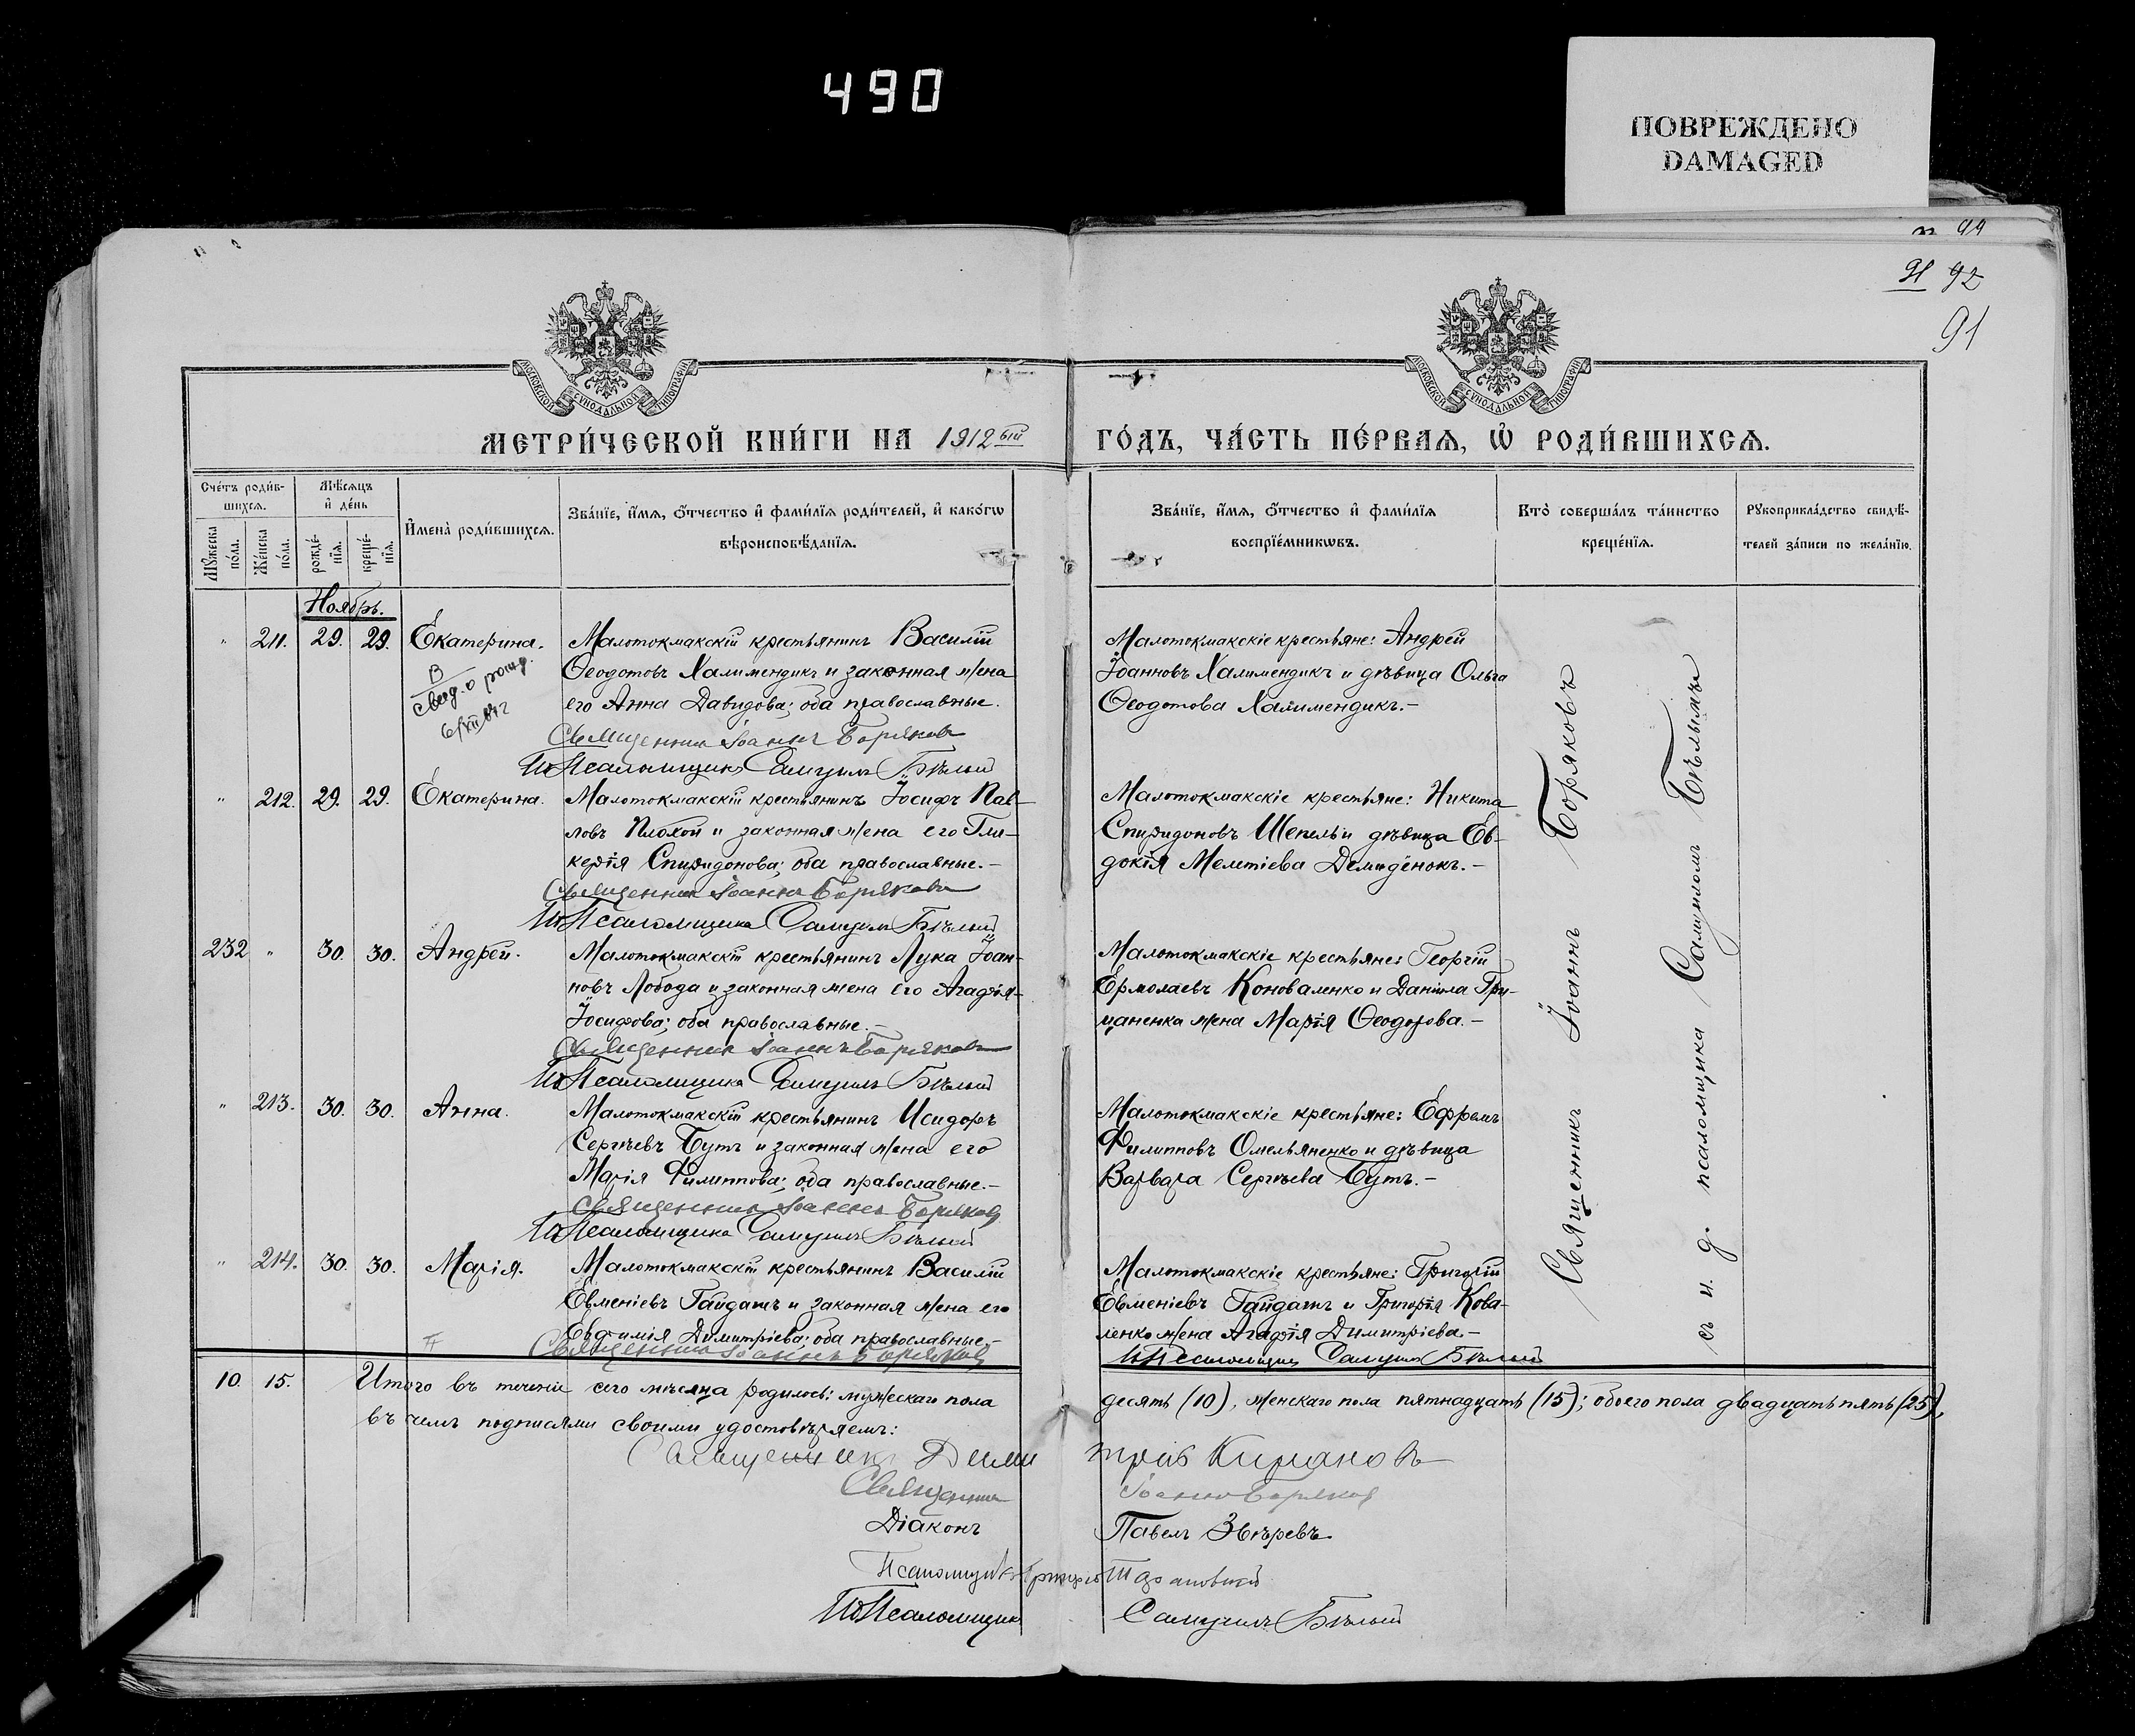 490
ПОВРЕЖДЕНО
DAMAGED
91 92
91
МОСКОВСКОЙ СУНОДАЛЬНОЙ ТИПОГРАФІИ
МОСКОВСКОЙ СУНОДАЛЬНОЙ ТИПОГРАФІИ
МЕТРИ́ЧЕСКОЙ КНИ́ГИ НА 1912ый ГО́ДЪ, ЧА́СТЬ ПЕ́РВАѦ, Ѡ҆ РОДИ́ВШИХСѦ.
Сче́тъ роди́в-
шихсѧ.
Мꙋ́жеска по́ла.
Же́нска по́ла.
Мѣ́сѧцъ
и҆ де́нь
рожде́-
нїѧ.
креще́-
нїѧ.
И҆мена̀ роди́вшихсѧ.
Зва́нїе, и҆́мѧ, ѻ҆́тчество и҆ фами́лїѧ роди́телей, и҆ како́гѡ
вѣроисповѣ́данїѧ.
Зва́нїе, и҆́мѧ, ѻ҆́тчество и҆ фами́лїѧ
воспрїе́мникѡвъ.
Кто̀ соверша́лъ та́инство
креще́нїѧ.
Рꙋкоприкла́дство свидѣ́-
телей за́писи по жела́нїю.
Ноябрь.
" 211. 29. 29. Екатерина. Малотокмакскій крестьянинъ Василій
Ѳеодотовъ Халимендикъ и законная жена
его Анна Давидова; оба православные.
В свид. о рожд.
Священникъ Іоаннъ Боряковъ
Ид Псаломщика Самуилъ Бѣлый
Малотокмакскіе крестьяне: Андрей
Іоанновъ Халимендикъ и дѣвица Ольга
Ѳеодотова Халимендикъ.-
" 212. 29. 29. Екатерина. Малотокмакскій крестьянинъ Іосифъ Пав-
ловъ Плохой и законная жена его Гли-
керія Спиридонова; оба православные.-
Священникъ Іоаннъ Боряковъ
Ид Псаломщика Самуилъ Бѣлый
Малотокмакскіе крестьяне: Никита
Спиридоновъ Шепель и дѣвица Ев-
докія Мелитіева Демиденокъ.-
232 " 30. 30. Андрей. Малотокмакскій крестьянинъ Лука Іоан-
новъ Лобода и законная жена его Агаѳія
Іосифова; оба православные.-
Священникъ Іоаннъ Боряковъ
Ид Псаломщика Самуилъ Бѣлый
Малотокмакскіе крестьяне: Георгій
Ермолаевъ Коноваленко и Даніила Гри-
цаненка жена Марія Ѳеодорова.-
" 213. 30. 30. Анна. Малотокмакскій крестьянинъ Исидоръ
Сергѣевъ Бутъ и законная жена его
Марія Филиппова; оба православные.-
Священникъ Іоаннъ Боряковъ
Ид Псаломщика Самуилъ Бѣлый
Малотокмакскіе крестьяне: Ефремъ
Филипповъ Омельяненко и дѣвица
Варвара Сергѣева Бутъ.-
" 214. 30. 30. Марія. Малотокмакскій крестьянинъ Василій
Евменіевъ Гайдашъ и законная жена его
Евфимія Димитріева; оба православные.-
Священникъ Іоаннъ Боряковъ
Малотокмакскіе крестьяне: Григорій
Евменіевъ Гайдашъ и Григорія Кова-
ленко жена Агаѳія Димитріева.-
Ид Псаломщика Самуилъ Бѣлый
Священникъ Іоаннъ Боряковъ
съ и. д. псаломщика Самуиломъ Бѣлымъ
10. 15. Итого въ теченіе сего мѣсяца родилось: мужескаго пола десять (10), женскаго пола пятнадцать (15); обоего пола двадцать пять (25),
въ чемъ подписями своими удостовѣряемъ:
Священникъ Димитрій Кирiановъ
Священникъ Іоаннъ Боряковъ
Діаконъ Павелъ Звѣревъ
Псаломщикъ Григорій
Ид Псаломщика Самуилъ Бѣлый